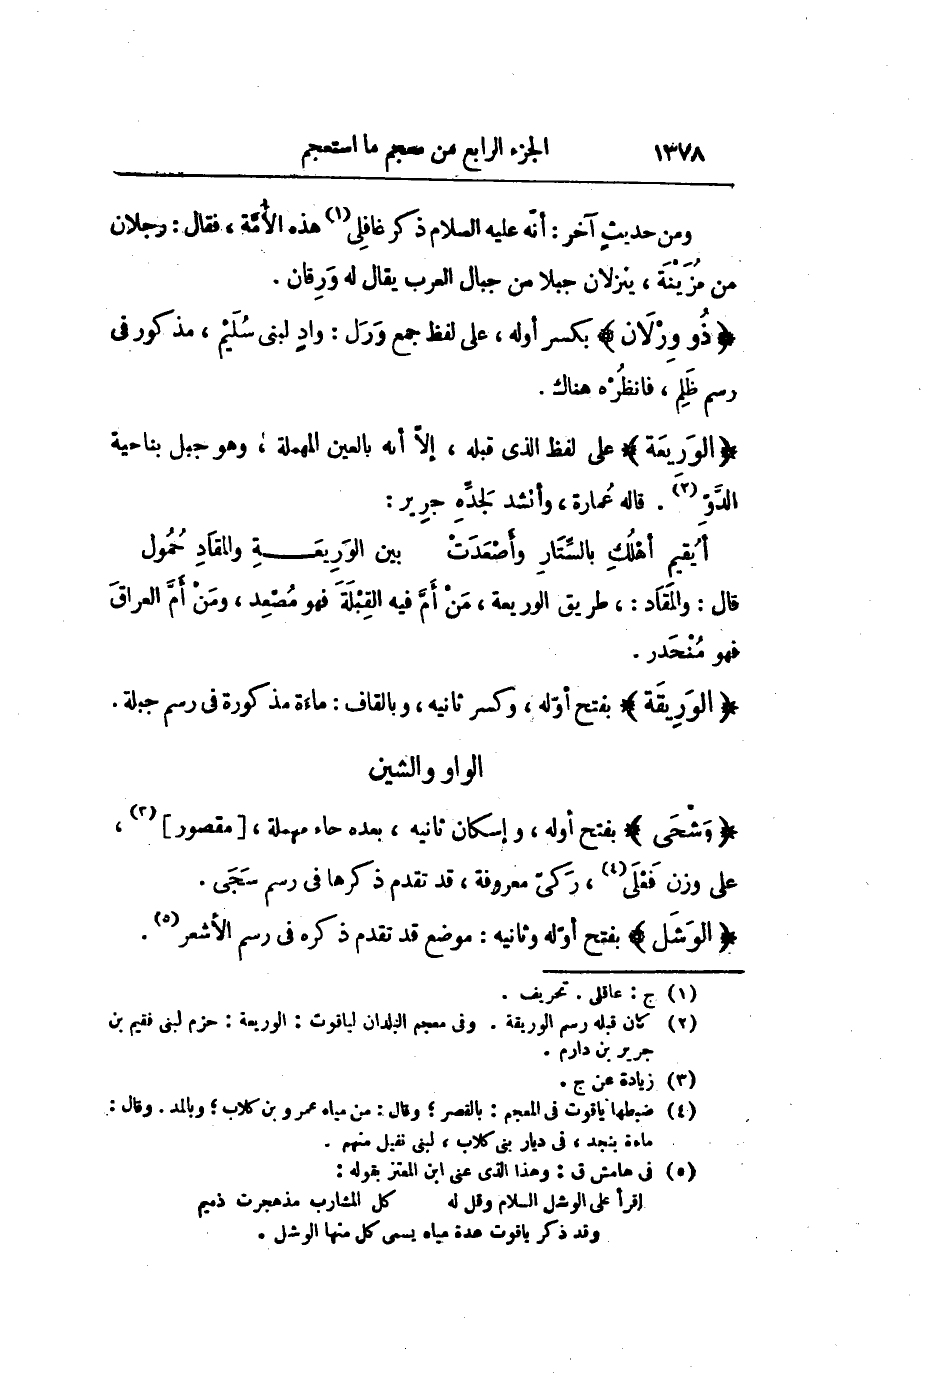 ١٣٧٨ الجزء الرابع من معجم ما استعجم
ومن حديثٍ آخر : أنّه عليه السلام ذكر غافلى(١) هذه الأُمَّة ، فقال : رجلان
من مُزَيْنَة ، ينزلان جبلا من جبال العرب يقال له وَرِقان .
﴿ ذُو وِرْلَان ﴾ بكسر أوله ، على لفظ جمع وَرَل : وادٍ لبنى سُلَيْمٍ ، مذكور فى
رسم ظَلِم ، فانظُرْه هناك .
﴿ الوَرِيعَة ﴾ على لفظ الذى قبله ، إلاّ أنه بالعين المهملة ؛ وهو جبل بناحية
الدَّوّ(٢) . قاله عُمارة ، وأنشد لجَدِّهِ جرير :
أيُقيم أهْلُكِ بالسِّتَارِ وأَصْعَدَتْ بين الوَرِيعَـــــةِ والمقَادِ حُمُول
قال : والمَقَاد : ، طريق الوريعة ، مَنْ أَمَّ فيه القِبْلَةَ فهو مُصْعِد ، ومَنْ أَمَّ العراقَ
فهو مُنْحَدر .
﴿ الوَرِيقَة ﴾ بفتح أوّله ، وكسر ثانيه ، وبالقاف : ماءة مذكورة فى رسم جبلة .
الواو والشين
﴿ وَشْحَى ﴾ بفتح أوله ، وإسكان ثانيه ، بعده حاء مهملة ، [ مقصور ](٣) ،
على وزن فَعْلَى(٤) ، رَكىّ معروفة ، قد تقدم ذكرها فى رسم سَجَى .
﴿ الوَشَل ﴾ بفتح أوّله وثانيه : موضع قد تقدم ذكره فى رسم الأشعر(٥) .
(١) ج : عاقلى . تحريف .
(٢) كان قبله رسم الوريقة . وفى معجم البلدان لياقوت : الوريعة : حزم لبنى فقيم بن
جرير بن دارم .
(٣) زيادة عن ج .
(٤) ضبطها ياقوت فى المعجم : بالقصر ؛ وقال : من مياه عمرو بن كلاب ؛ وبالمد . وقال :
ماءة بنجد ، فى ديار بنى كلاب ، لبنى نفيل منهم .
(٥) فى هامش ق : وهذا الذى عنى ابن المعتز بقوله :
إقرأ على الوشل السلام وقل له كل المشارب مذ هجرت ذميم
وقد ذكر ياقوت عدة مياه يسمى كل منها الوشل .